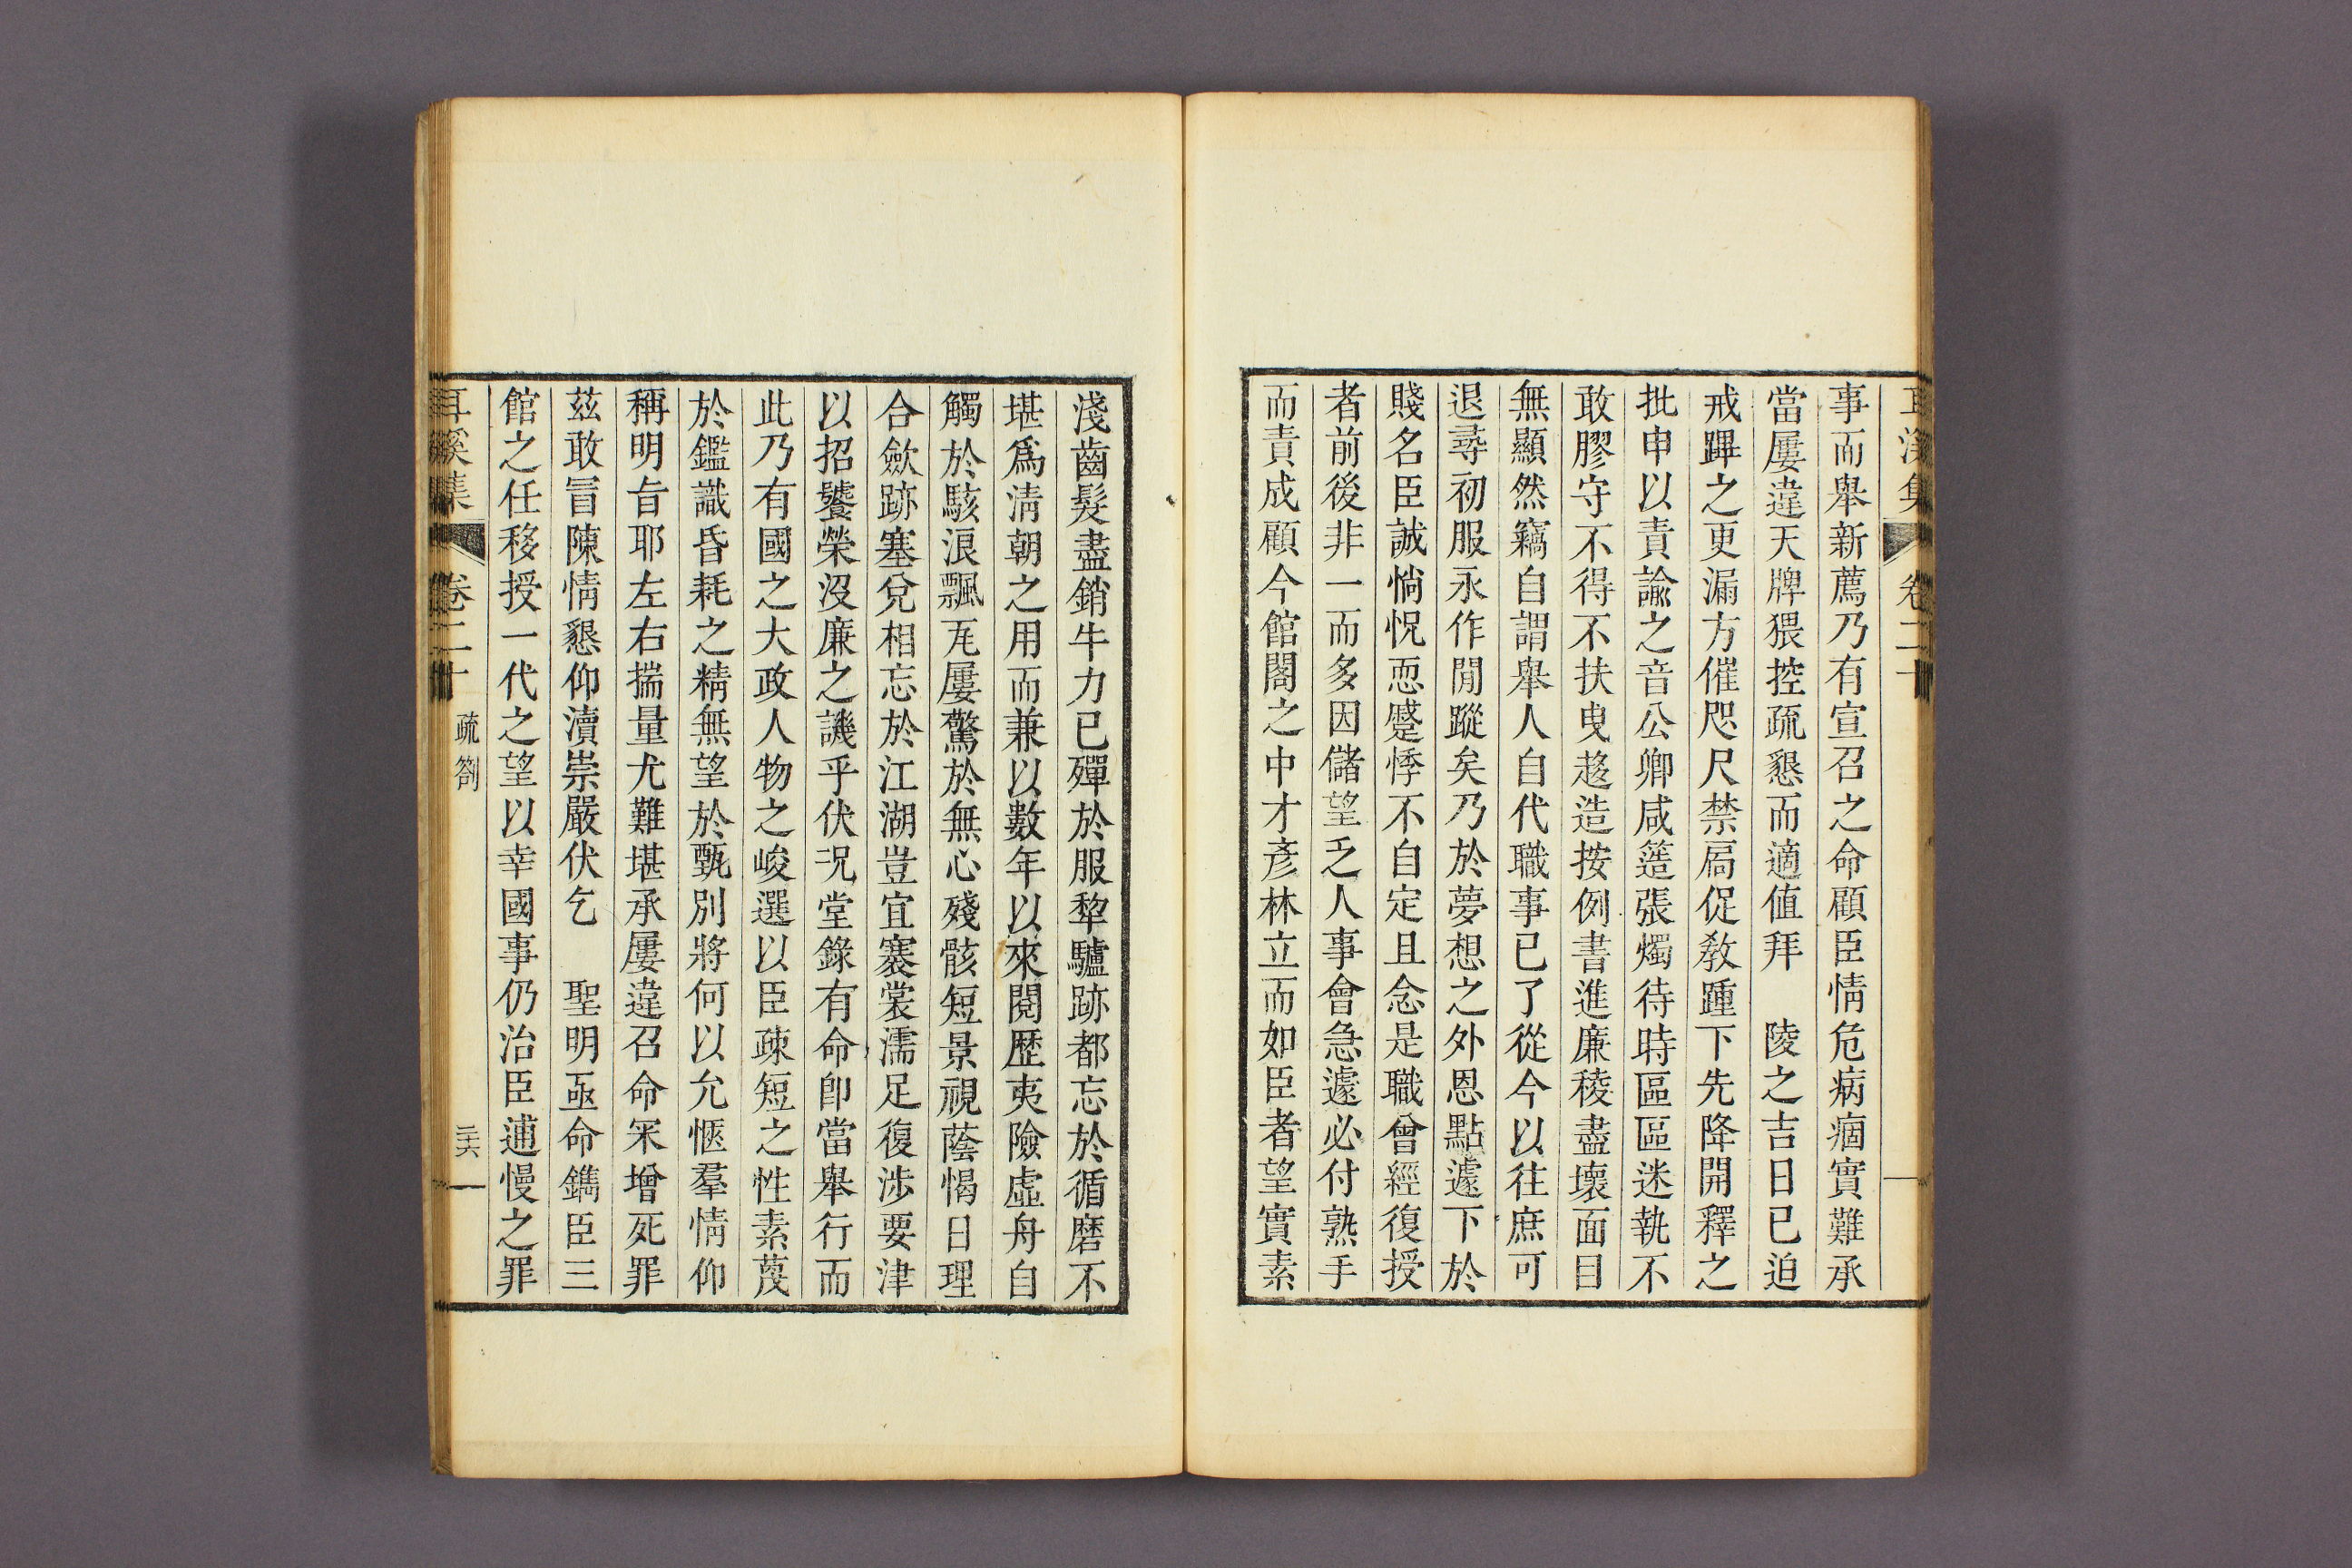 耳溪集 卷二十
事而舉新薦乃有宣召之命顧臣情危病痼實難承
當屢違天牌猥控疏懇而適值拜 陵之吉日已迫
戒蹕之更漏方催咫尺禁扃促敎踵下先降開釋之
批申以責諭之音公卿咸簉張燭待時區區迷執不
敢膠守不得不扶曳趍造按例書進廉稜盡壞面目
無顯然竊自謂舉人自代職事已了從今以往庶可
退尋初服永作閒蹤矣乃於夢想之外恩點遽下於
賤名臣誠惝怳恧蹙悸不自定且念是職曾經復授
者前後非一而多因儲望乏人事會急遽必付熟手
而責成顧今館閣之中才彥林立而如臣者望實素
淺齒髮盡銷牛力已殫於服犂驢跡都忘於循磨不
堪爲淸朝之用而兼以數年以來閱歷夷險虛舟自
觸於駭浪飄瓦屢驚於無心殘骸短景視蔭愒日理
合歛跡塞兌相忘於江湖豈宜褰裳濡足復涉要津
以招饕榮沒廉之譏乎伏况堂錄有命卽當舉行而
此乃有國之大政人物之峻選以臣疎短之性素蔑
於鑑識昏耗之精無望於甄別將何以允愜羣情仰
稱明旨耶左右揣量尤難堪承屢違召命冞增死罪
茲敢冒陳情懇仰瀆崇嚴伏乞 聖明亟命鐫臣三
館之任移授一代之望以幸國事仍治臣逋慢之罪
耳溪集 卷二十 疏劄 二十六